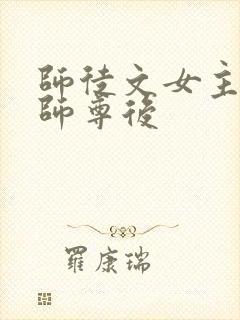 師徒文女主
師尊後
羅康瑞